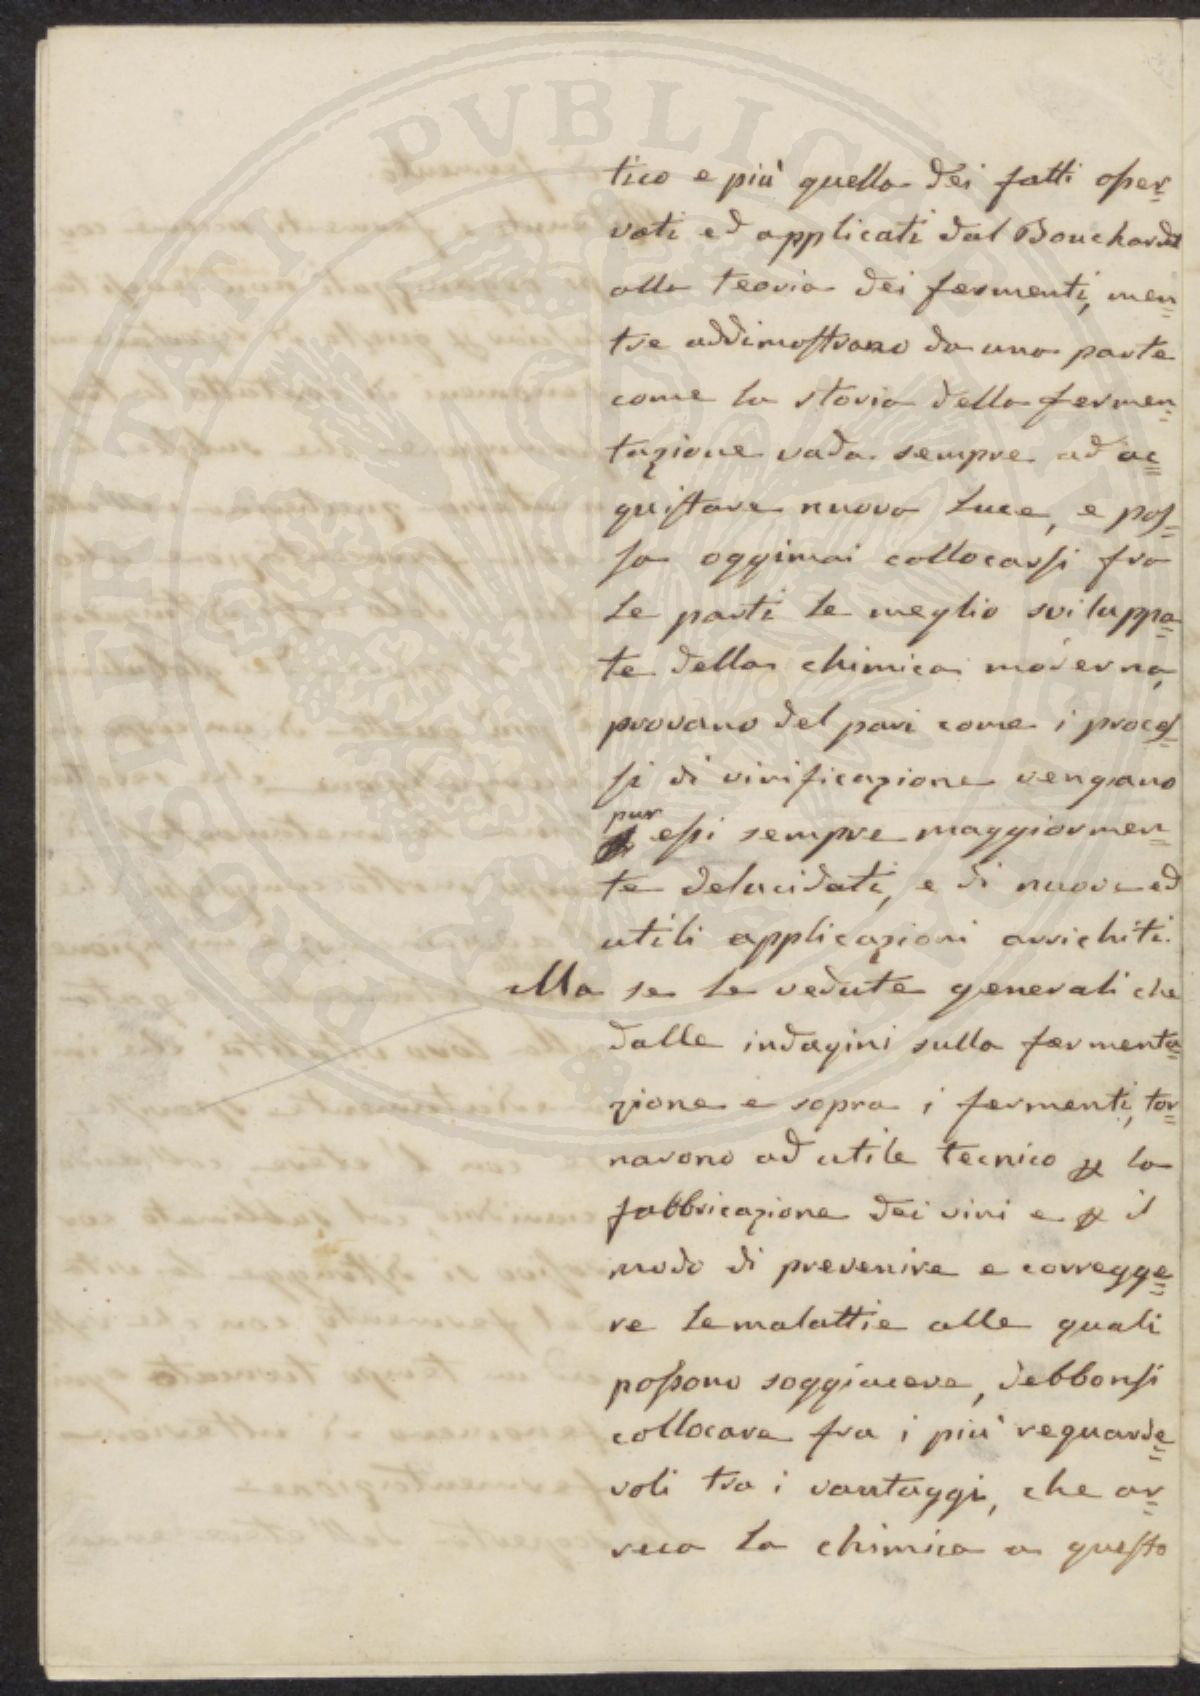 tico e più quella dei fatti osser=
vati ed applicati dal Bouchardat
alla teoria dei fermenti, men=
tre addimostrano da una parte
come la storia della fermen=
tazione vada sempre ad ac=
quistare nuova luce, e pos=
sa oggimai collocarsi fra
le parti le meglio sviluppa=
te della chimica moderna,
provano del pari come i proces=
si di vinificazione vengano
pur
essi sempre maggiormen=
te delucidati, e di nuove ed
utili applicazioni arrichiti.
Ma se le vedute generali che
dalle indagini sulla fermenta=
zione e sopra i fermenti, tor=
narono ad utile tecnico p la
fabbricazione dei vini e p il
modo di prevenire e corregge=
re le malattie alle quali
possono soggiacere, debbonsi
collocare fra i più reguarde=
voli tra i vantaggi, che ar=
reca la chimica a questo